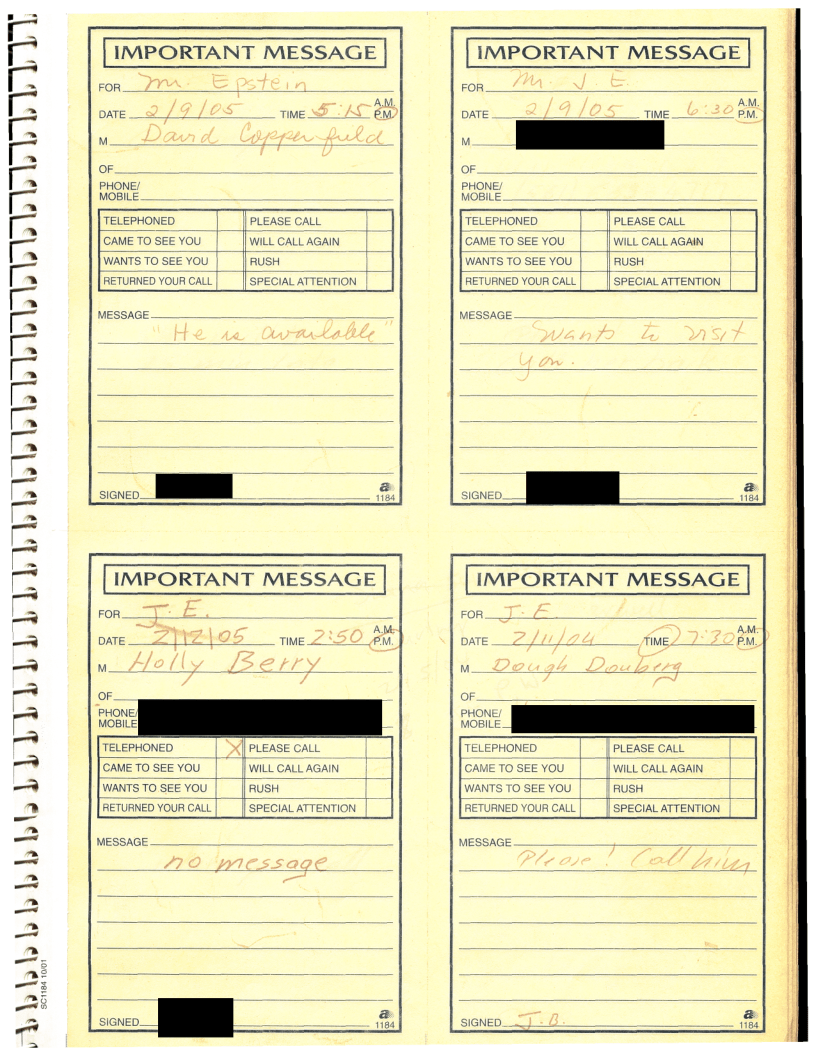 IMPORTANT MESSAGE
FOR Mr. Epstein
DATE 2/9/05 TIME 5:15 A.M. P.M.
M David Copperfield
OF
PHONE/
MOBILE
TELEPHONED PLEASE CALL
CAME TO SEE YOU WILL CALL AGAIN
WANTS TO SEE YOU RUSH
RETURNED YOUR CALL SPECIAL ATTENTION
MESSAGE
"He is available"
SIGNED
a
1184
IMPORTANT MESSAGE
FOR Mr. J. E.
DATE 2/9/05 TIME 6:30 A.M. P.M.
M
OF
PHONE/
MOBILE
TELEPHONED PLEASE CALL
CAME TO SEE YOU WILL CALL AGAIN
WANTS TO SEE YOU RUSH
RETURNED YOUR CALL SPECIAL ATTENTION
MESSAGE
wants to visit
you.
SIGNED
a
1184
IMPORTANT MESSAGE
FOR J. E.
DATE 2/12/05 TIME 2:50 A.M. P.M.
M Holly Berry
OF
PHONE/
MOBILE
TELEPHONED X PLEASE CALL
CAME TO SEE YOU WILL CALL AGAIN
WANTS TO SEE YOU RUSH
RETURNED YOUR CALL SPECIAL ATTENTION
MESSAGE
no message
SIGNED
a
1184
IMPORTANT MESSAGE
FOR J. E.
DATE 2/11/04 TIME 7:30 A.M. P.M.
M Dough Douberg
OF
PHONE/
MOBILE
TELEPHONED PLEASE CALL
CAME TO SEE YOU WILL CALL AGAIN
WANTS TO SEE YOU RUSH
RETURNED YOUR CALL SPECIAL ATTENTION
MESSAGE
Please! Call him
SIGNED J.B.
a
1184
SC1184 10/01